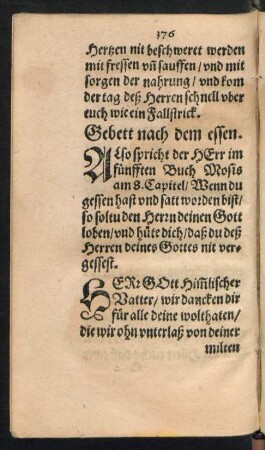 376
Hertzen nit beschweret werden
mit fressen vñ sauffen/vnd mit
sorgen der nahrung/vnd kom
der tag deß Herren schnell vber
euch wie ein Fallstrick.
Gebett nach dem essen.
ALso spricht der HErr im
fünfften Buch Mosis
am 8. Capitel/Wenn du
gessen hast vnd satt worden bist/
so soltu den Herrn deinen Gott
loben/vnd hüte dich/daß du deß
Herren deines Gottes nit ver-
gessest.
HERr GOtt Him̃lischer
Vatter/wir dancken dir
für alle deine wolthaten/
die wir ohn vnterlaß von deiner
milten